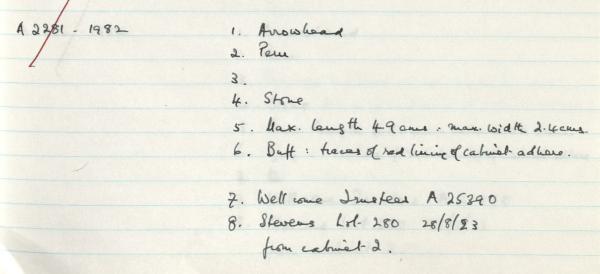 A 2281 - 1982
1. Arrowhead
2. Peru
3.
4. Stone
5. Max. length 4.9 cms. max. width 2.4 cms.
6. Buff: traces of red lining of cabinet adhere.
7. Wellcome Trustees A 25390
8. Stevens Lot 280 28/8/23
from cabinet 2.